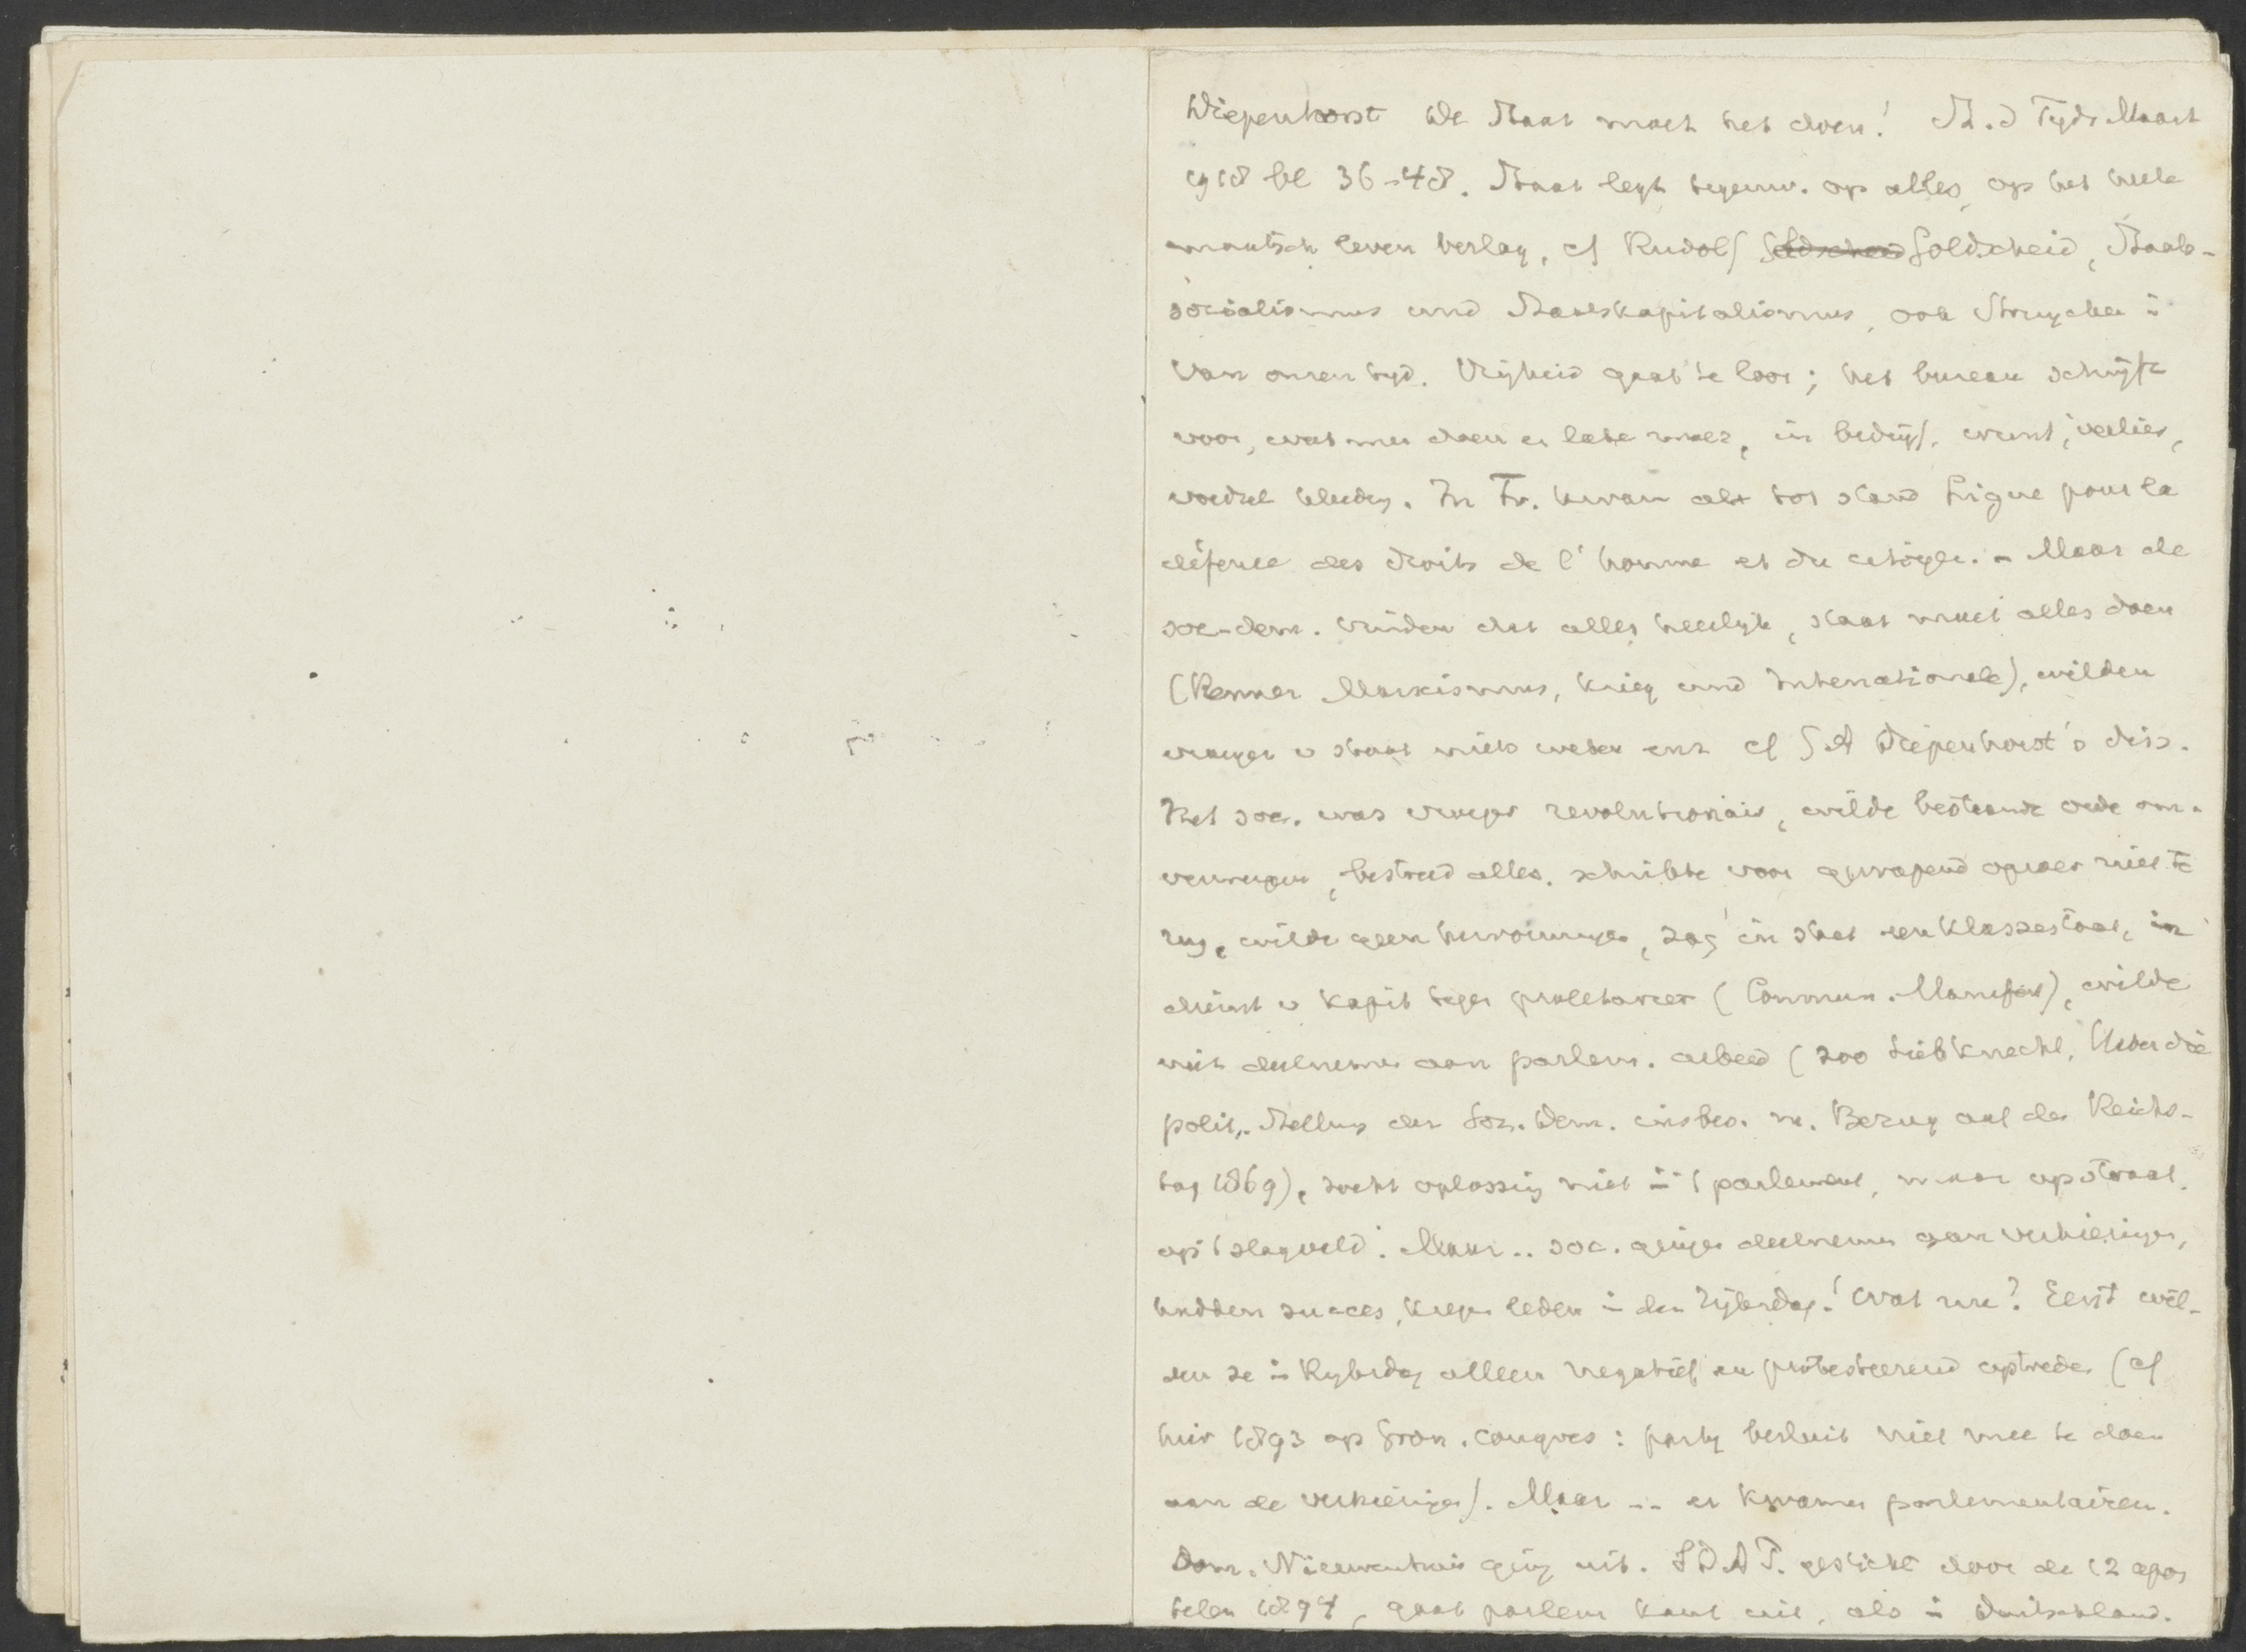 Diepenhorst De Staat moet het doen! St. d Tijds Maart
1918 bl 36-48. Staat legt tegenw. op alles, op het heele
maatsch leven beslag, cf Rudolf Goldscheid, Staats-
socialismus und Staatskapitalismus, ook Struycken in
Van onzen tijd. Vrijheid gaat te loor; het bureau schrijft
voor, wat men doen en laten moet, in bedrijf, winst, verlies,
voedsel kleeding. In Fr. kwam als tot stand Ligue pour la
défense des droits de l'homme et du citoyen. - Maar de
soc-dem. vinden dat alles heerlijk, staat moet alles doen
(Renner Marxismus, Krieg und Internationale), wilden
vroeger v staat niets weten enz cf I A Diepenhorst's diss.
Het soc. was vroeger revolutionair, wilde bestaande orde om-
verwerpen, bestreed alles. schrikte voor gewapend oproer niet te
rug, wilde geen hervormingen, zag in staat een klassestaat, in
dienst v kapit tegen proletariër (Commun. Manifest), wilde
niet deelnemen aan parlem. arbeid (zoo Liebknecht, Ueber die
polit. Stellung der Soz. Dem. insbes. m. Bezug auf den Reichs-
tag 1869), zocht oplossing niet in 't parlement, maar op straat.
op 't slagveld. Maar .. soc. gingen deelnemen aan verkiezingen,
hadden succes, kregen leden in den Rijksdag! Wat nu? Eerst wil-
den ze in Rijksdag alleen negatief en protesteerend optreden (cf
hier 1893 op Gron. congres: partij besluit niet mee te doen
aan de verkiezingen). Maar .. er kwamen parlementairen.
Dom. Nieuwenhuis ging uit. SDAP. gesticht door de 12 apos
telen 1894, gaat parlem kant uit, als in Duitschland.